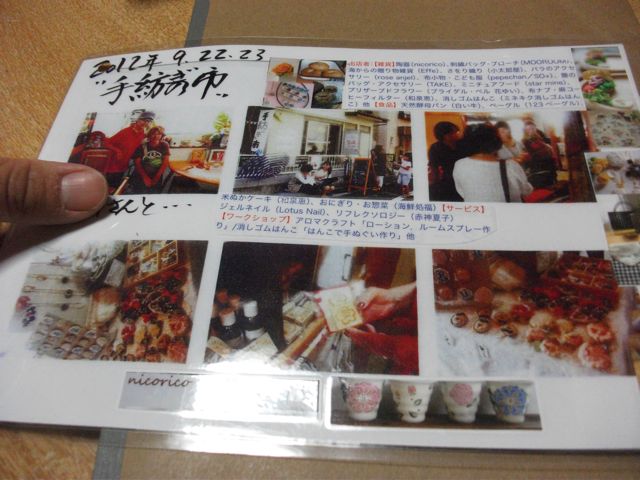 2012年 9.22.23
"手紡ぎ市"
さんと…
出店者【雑貨】陶器(nicorico)、刺繍バッグ・ブローチ(MOORUUM)、
海からの贈り物雑貨(Effe)、さをり織り(小太郎屋)、バラのアクセ
サリー(rose anjel)、布小物・こども服(pepechan／SOx)、籐の
バッグ・アクセサリー(TAKE)、ミニチュアフード(star mine)、
プリザーブドフラワー(ブライダル・ベル 花ゆい)、布ナプ・麻コー
ヒーフィルター(和泉恵)、消しゴムはんこ(ミネキウ消しゴムはん
こ)他【食品】天然酵母パン(白い牛)、ベーグル(123ベーグル)、
米ぬかケーキ(和泉恵)、おにぎり・お惣菜(海鮮処福)【サービス】
ジェルネイル(Lotus Nail)、リフレクソロジー(赤神夏子)
【ワークショップ】アロマクラフト「ローション、ルームスプレー作
り」/消しゴムはんこ「はんこで手ぬぐい作り」他
nicorico